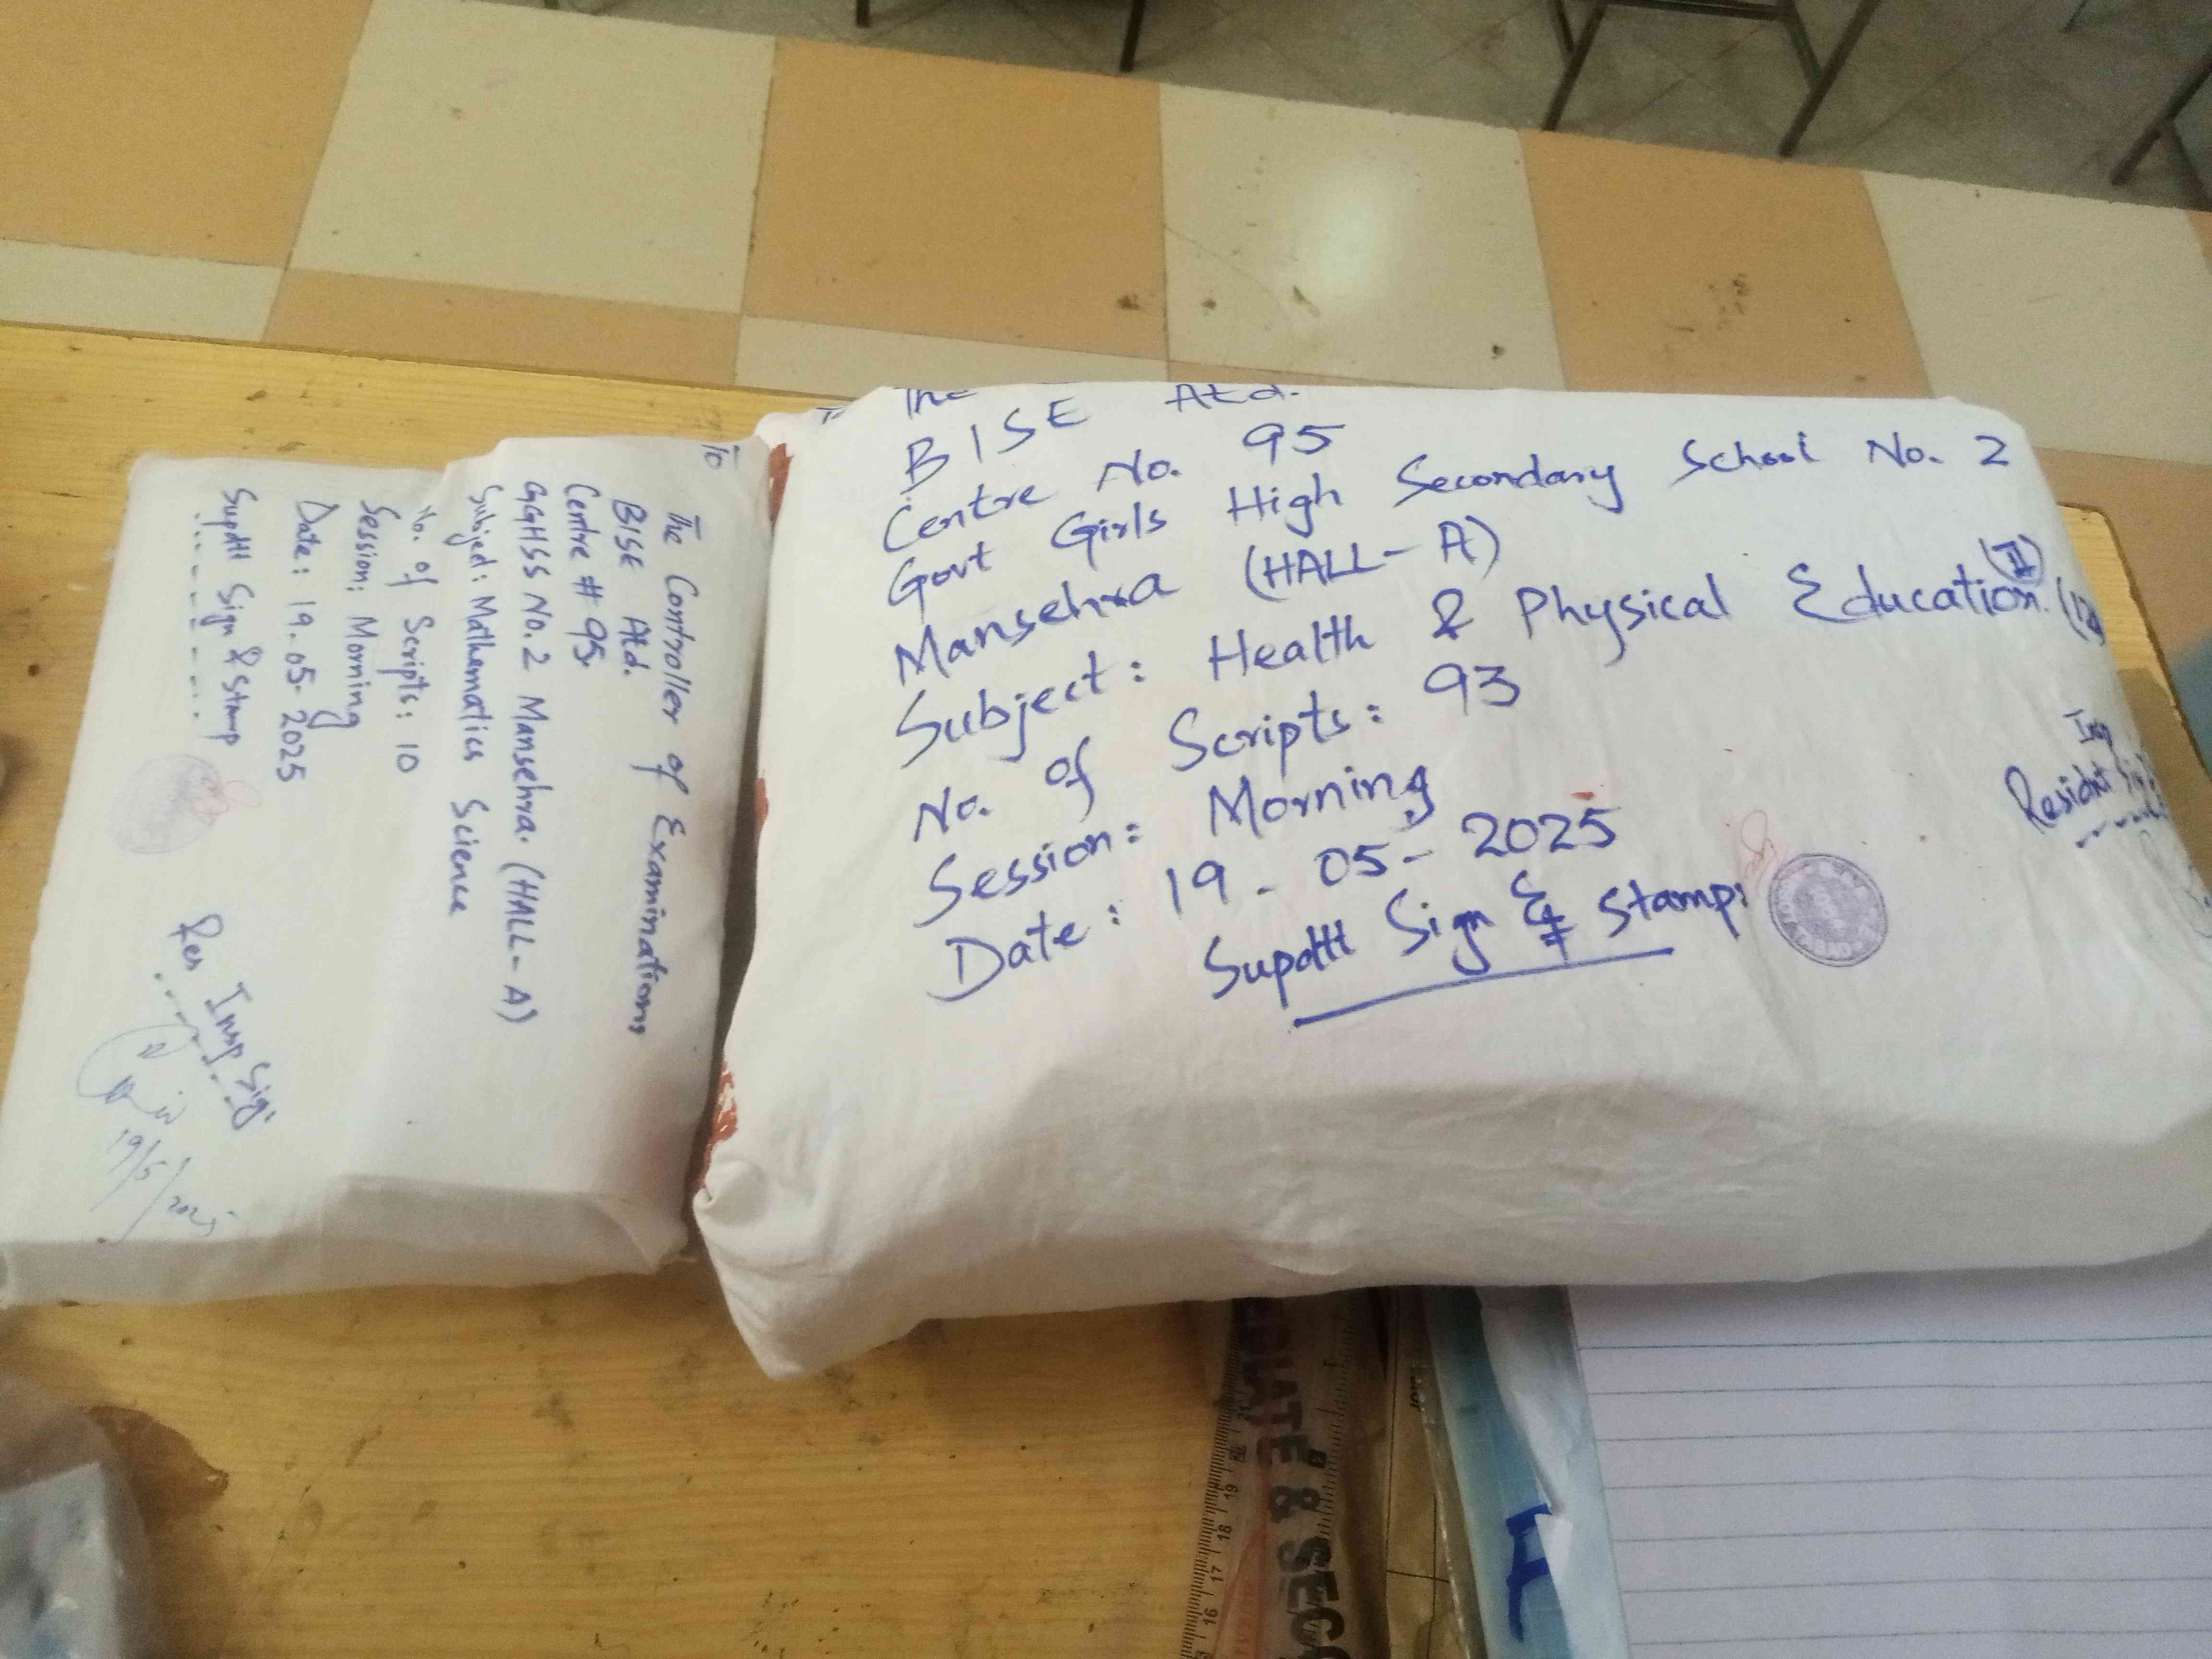 To
The Controller of Examinations
BISE Atd.
Centre # 95
GGHSS No.2 Mansehra. (HALL-A)
Subject: Mathematics Science
No. of Scripts: 10
Session: Morning
Date: 19.05.2025
Supdtt Sign & Stamp
Res Insp Sig:
19/5/2025
The
BISE Atd.
Centre No. 95
Govt Girls High Secondary School No. 2
Mansehra (HALL-A)
Subject: Health & Physical Education (II)
No. of Scripts: 93
Session: Morning
Date: 19-05-2025
Supdtt Sign & Stamp:
Resident